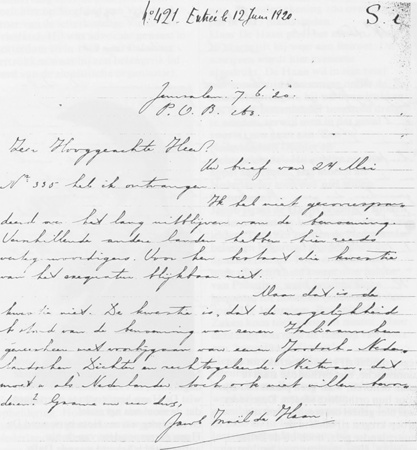 No 421. Entrée le 12 Juni 1920. S. i
Jerusalem 7. 6. 20.
P. O. B.
Zeer Hooggeachte Heer!
Uw brief van 24 Mei
No 335 heb ik ontvangen.
Ik heb niet gecorrespon-
deerd het lang uitblijven van de benoeming.
Verschillende andere landen hebben hier reeds
woordigers. Voor hen bestaat die kwestie
van het exequatur blijkbaar niet.
Maar dat is de
kwestie niet. De kwestie is, dat de mogelijkheid
bestond van de benoeming van eenen Italiaanschen
met voorbijgaan van eenen Joodsch. Neder-
landschen Dichter en rechtsgeleerde. Nietwaar, dat
moet u als Nederlander toch ook niet willen bevor-
deren? Gaarne uw dw.,
Jacob Israël de Haan